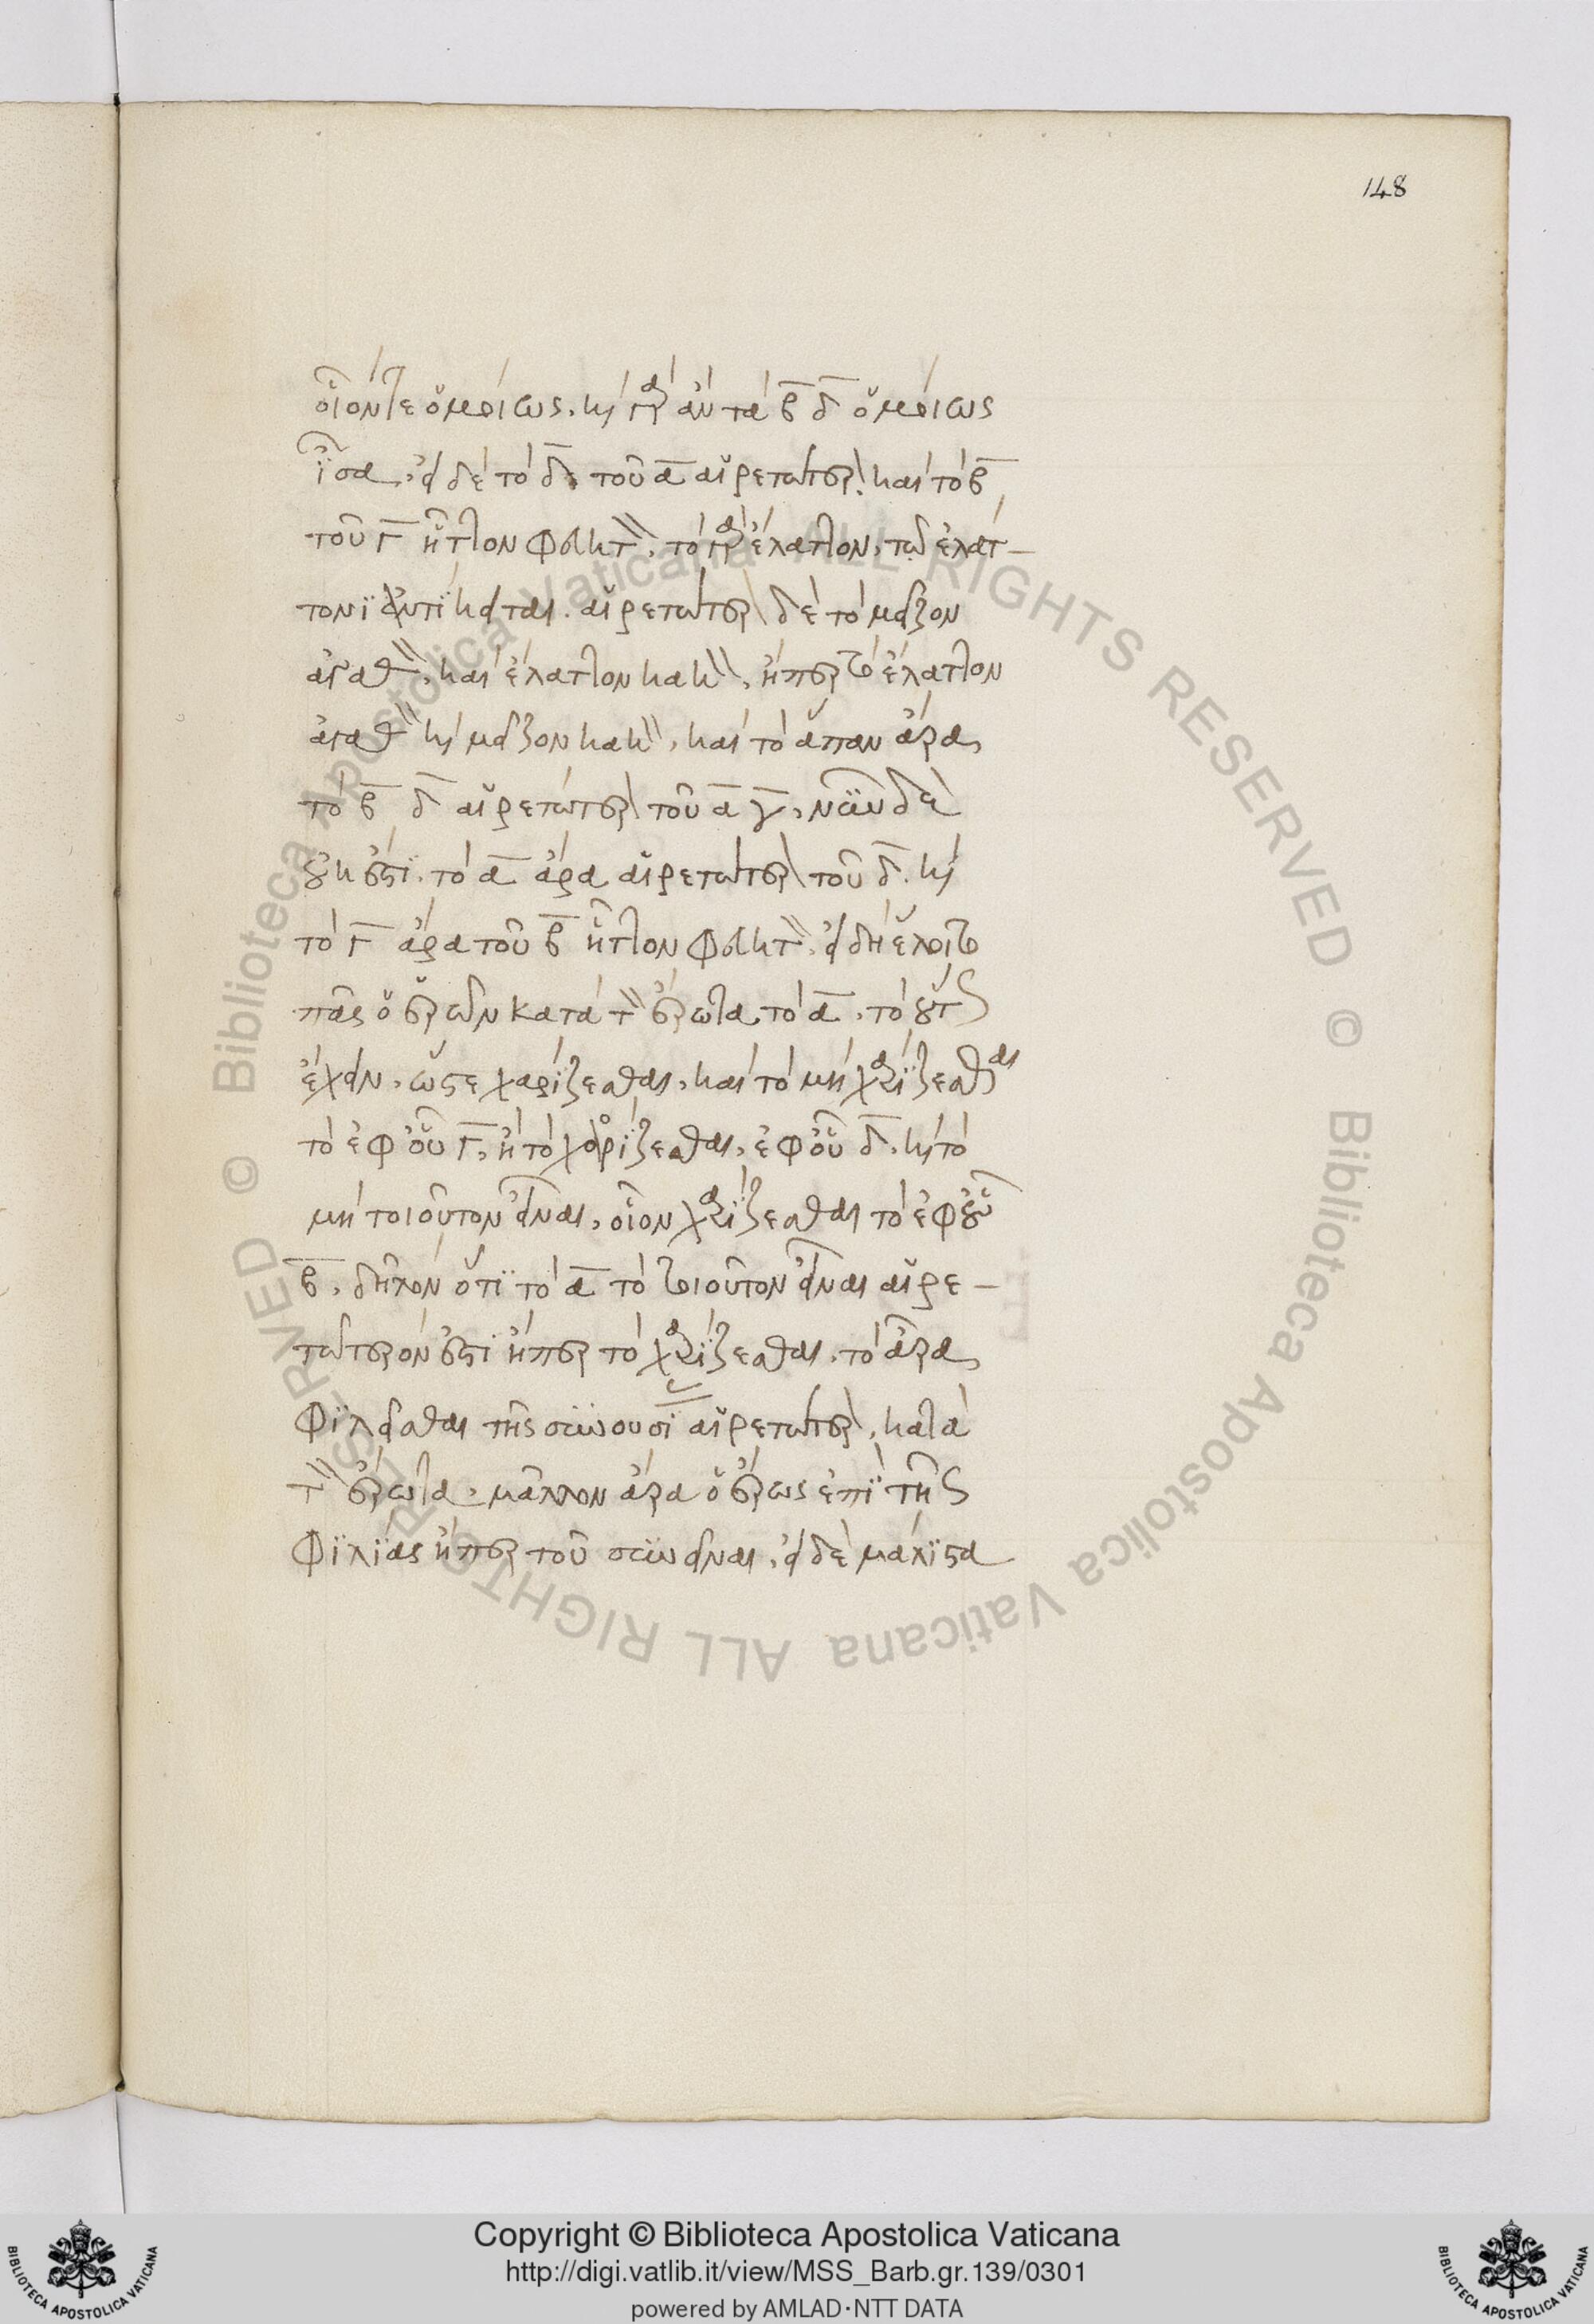 148
οἷόν τε ὁμοίως. καὶ γὰρ ἂν τὰ β δ ὁμοίως
ἴσα. εἰ δὲ τὸ δ τοῦ α αἱρετώτερον καὶ τὸ β
τοῦ γ ἧττον φευκτόν. τὸ γὰρ ἔλαττον, τῷ ἐλάτ-
τονι ἀντίκειται. αἱρετώτερον δὲ τὸ μεῖζον
ἀγαθόν, καὶ ἔλαττον κακόν, ἤπερ τὸ ἔλαττον
ἀγαθὸν καὶ μεῖζον κακόν, καὶ τὸ ἅπαν ἄρα
τὸ β δ αἱρετώτερον τοῦ α γ, νῦν δὲ
οὐκ ἔστι. τὸ α ἄρα αἱρετώτερον τοῦ δ. καὶ
τὸ γ ἄρα τοῦ β ἧττον φευκτόν. εἰ δὴ ἕλοιτο
πᾶς ὁ ἐρῶν κατὰ τὸν ἔρωτα τὸ α. τὸ οὕτως
ἔχειν, ὥστε χαρίζεσθαι, καὶ τὸ μὴ χαρίζεσθαι
τὸ ἐφ' οὗ γ, ἢ τὸ χαρίζεσθαι, ἐφ' οὗ δ, καὶ τὸ
μὴ τοιοῦτον εἶναι, οἷον χαρίζεσθαι τὸ ἐφ' οὗ
β, δῆλον ὅτι τὸ α τὸ τοιοῦτον εἶναι αἱρε-
τώτερόν ἐστι ἤπερ τὸ χαρίζεσθαι. τὸ ἄρα
φιλεῖσθαι τῆς συνουσί αἱρετώτερον, κατὰ
τὸν ἔρωτα. μᾶλλον ἄρα ὁ ἔρως ἐπὶ τῆς
φιλίας ἤπερ τοῦ συνεῖναι. εἰ δὲ μάλιστα
© Biblioteca Apostolica Vaticana ALL RIGHTS RESERVED © Biblioteca Apostolica Vaticana ALL RIGHTS RESERVED
BIBLIOTECA APOSTOLICA VATICANA
Copyright © Biblioteca Apostolica Vaticana
http://digi.vatlib.it/view/MSS_Barb.gr.139/0301
powered by AMLAD·NTT DATA
BIBLIOTECA APOSTOLICA VATICANA